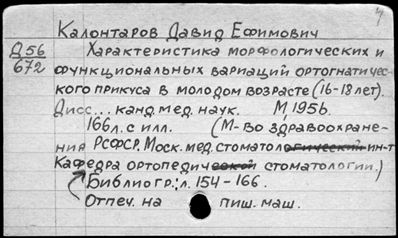 Калонтаров Давид Ефимович
Д56
672
Характеристика морфологических и
функциональных вариаций ортогнатичес-
кого прикуса в молодом возрасте (16-18 лет).
Дисс... канд. мед. наук. М 1956.
166 л. с илл. (М-во здравоохране-
ния РСФСР. Моск. мед. стоматологический ин-т
Кафедра ортопедической стоматологии.)
Библиогр.: л. 154-166.
Отпеч. на пиш. маш.